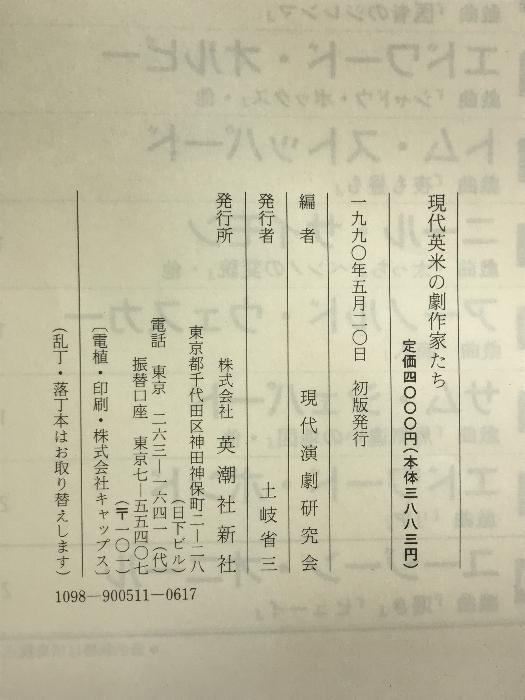 現代英米の劇作家たち
定価四〇〇〇円(本体三八八三円)
一九九〇年五月二〇日 初版発行
編者 現代演劇研究会
発行者 土岐省三
発行所 株式会社 英潮社新社
東京都千代田区神田神保町二—二八
(日下ビル)
電話 東京 二六三—一六四一(代)
振替口座 東京七—五五四〇七
(〒一〇一)
〔電植・印刷・株式会社キャップス〕
(乱丁・落丁本はお取り替えします)
1098—900511—0617